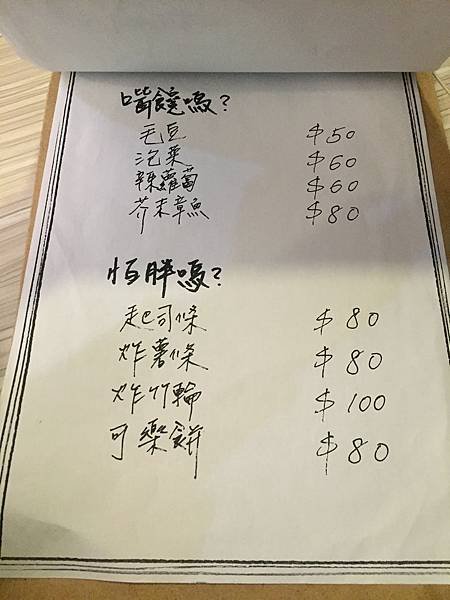 嘴饞嗎?
毛豆 $50
泡菜 $60
辣蘿蔔 $60
芥末章魚 $80
怕胖嗎?
起司條 $80
炸薯條 $80
炸竹輪 $100
可樂餅 $80